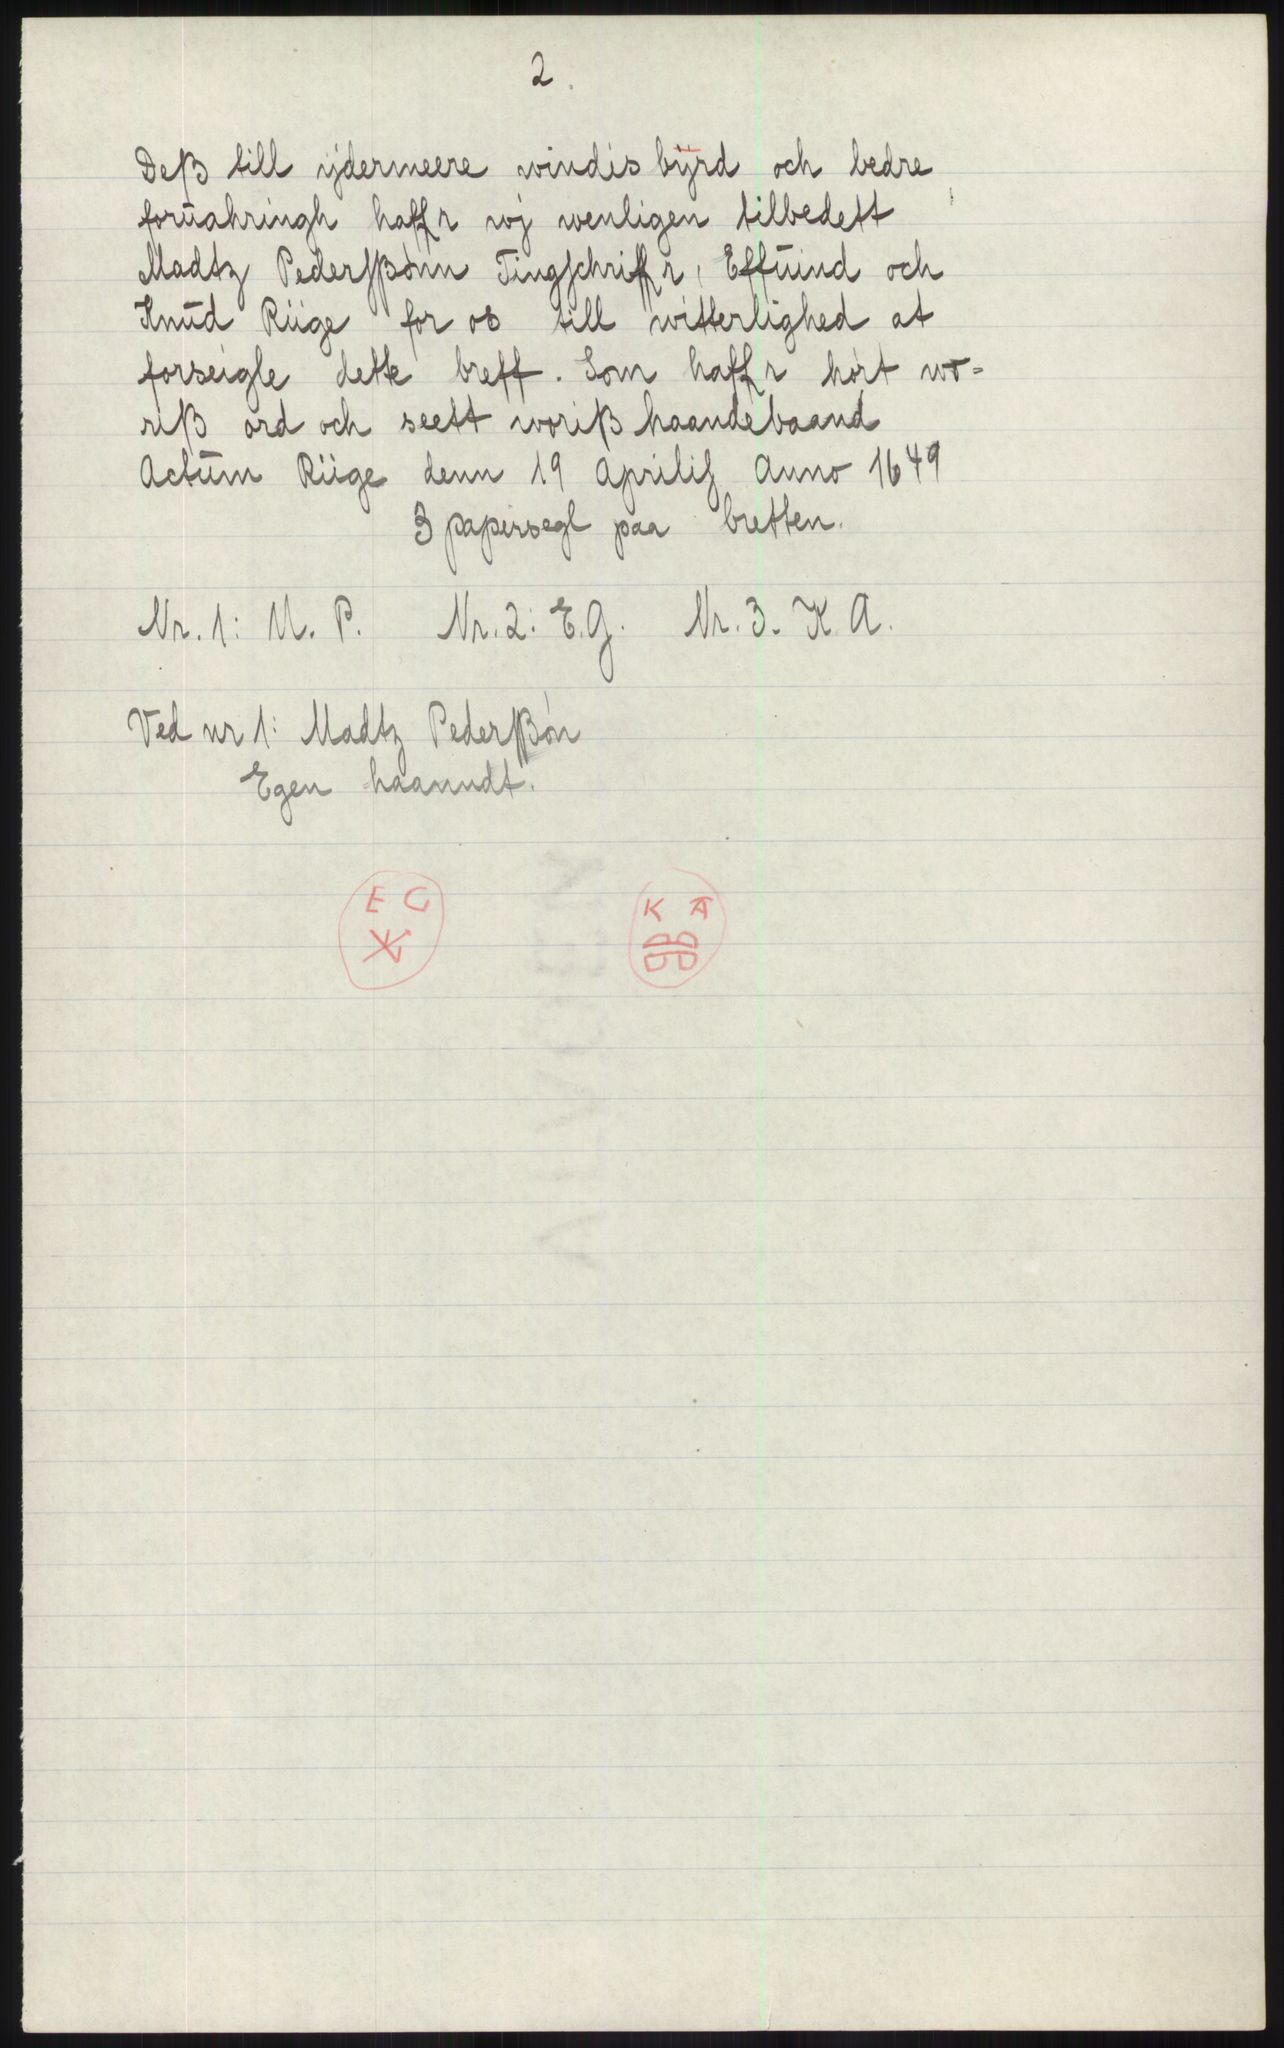 2.
Deß till ijdermeere windis bÿrd och bedre
foruahringh haffr wj wenligen tilbedett
Madtz Pederßönn Tingschriffr, Effuind och
Knud Riige for os till witterlighed at
forseigle dette breff. Som haffr hört wo=
riß ord och seett woriß haandebaand
Actum Riige denn 19 Aprilis Anno 1649
3 papirsegl paa bretten.
Nr. 1: M. P. Nr. 2: E. G. Nr. 3. K. A.
Ved nr 1: Madtz Pederßön
Egen haanndt.
E G
K A